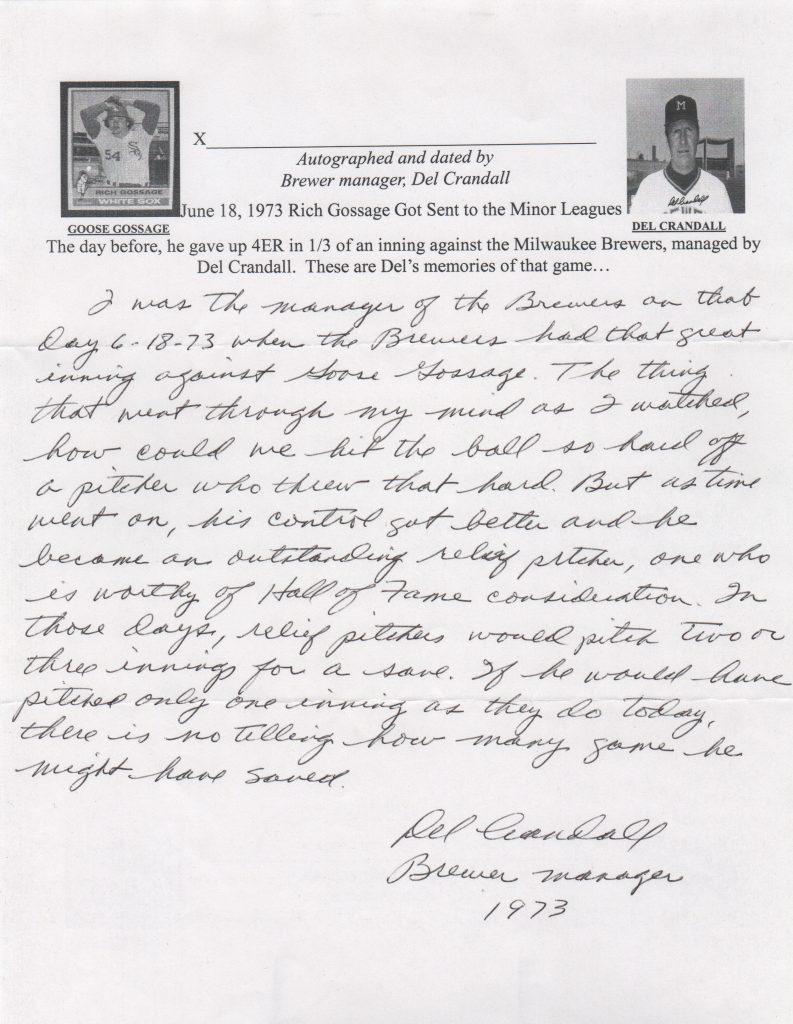 54
Sox
RICH GOSSAGE
WHITE SOX
GOOSE GOSSAGE
X
Autographed and dated by
Brewer manager, Del Crandall
M
Del Crandall
DEL CRANDALL
June 18, 1973 Rich Gossage Got Sent to the Minor Leagues
The day before, he gave up 4ER in 1/3 of an inning against the Milwaukee Brewers, managed by
Del Crandall. These are Del's memories of that game…
I was the manager of the Brewers on that
day 6-18-73 when the Brewers had that great
inning against Goose Gossage. The thing
that went through my mind as I watched,
how could we hit the ball so hard off
a pitcher who threw that hard. But as time
went on, his control got better and he
became an outstanding relief pitcher, one who
is worthy of Hall of Fame consideration. In
those days, relief pitchers would pitch two or
three innings for a save. If he would have
pitched only one inning as they do today,
there is no telling how many game he
might have saved.
Del Crandall
Brewer manager
1973